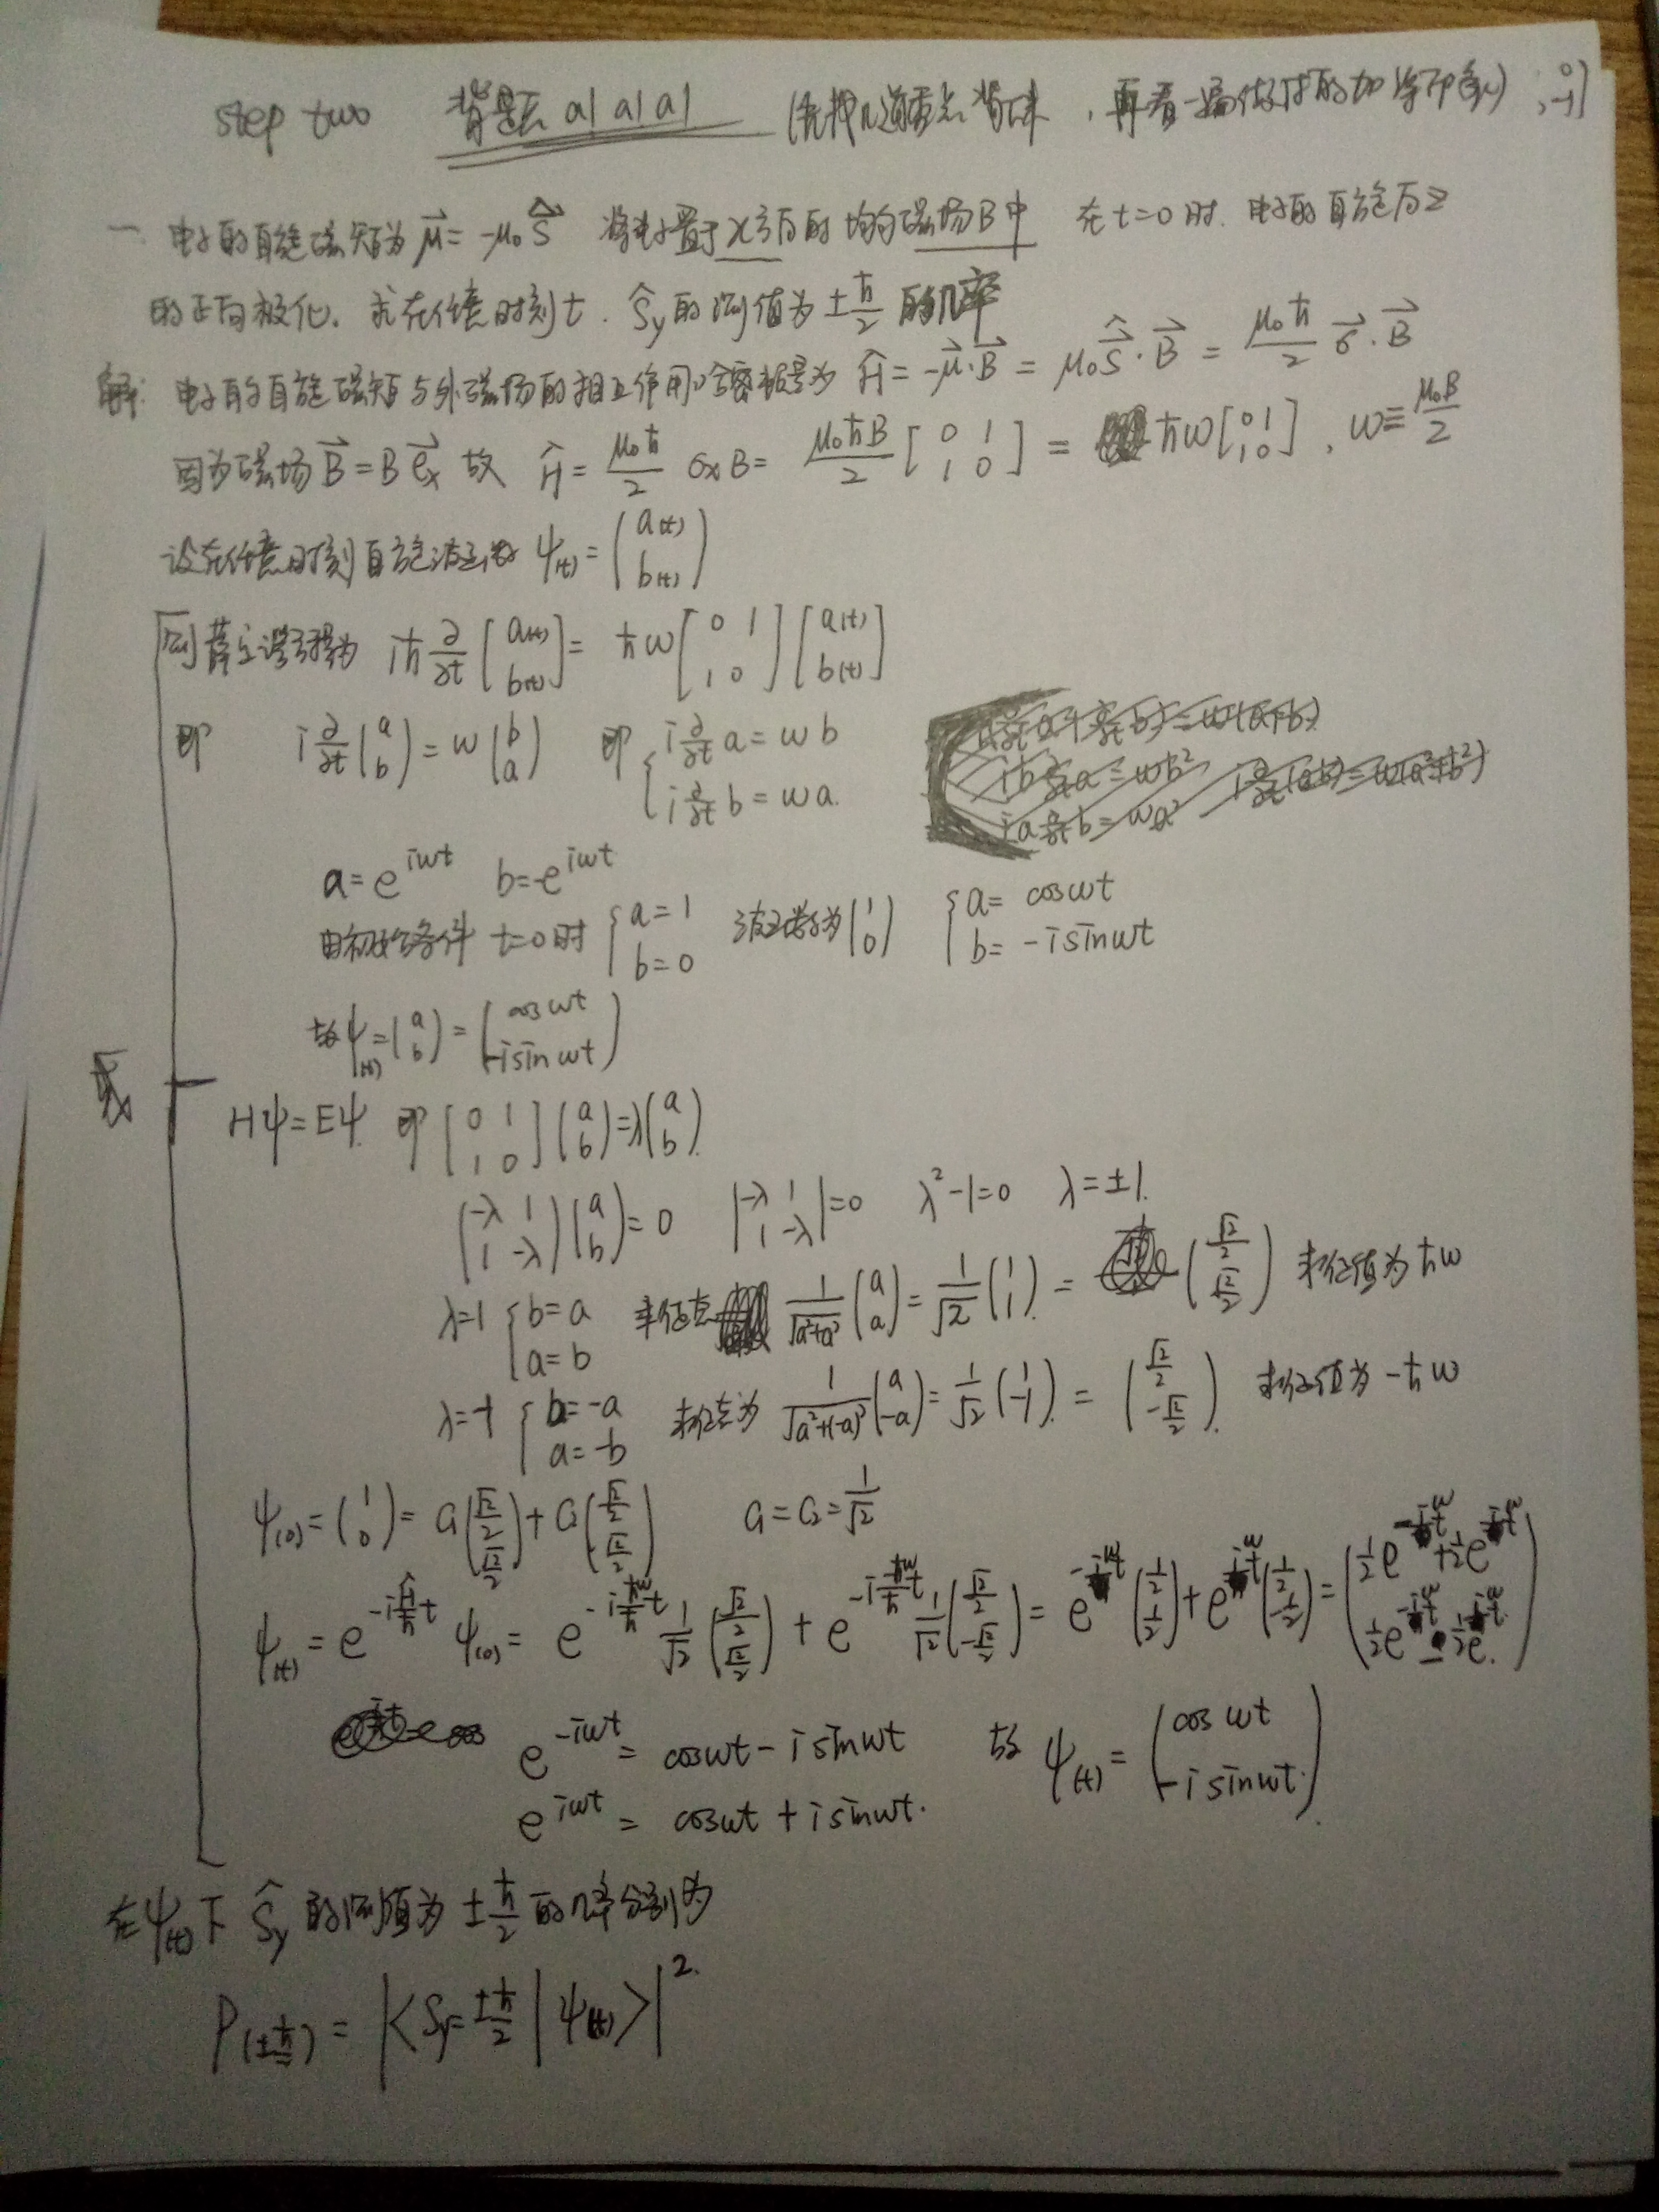 step two 背题 a! a! a! (先找几道重点背下来，再看一遍做过的加深印象)
一. 电子的自旋磁矩为 $\vec{\mu}=-\mu_0\hat{\vec{S}}$ 将电子置于x方向的均匀磁场B中 在t=0时. 电子的自旋向z
的正向极化. 求在任意时刻t. $\hat{S}_y$的测值为$\pm\frac{\hbar}{2}$的几率
解: 电子的自旋磁矩与外磁场的相互作用哈密顿量为 $\hat{H}=-\vec{\mu}\cdot\vec{B}=\mu_0\hat{\vec{S}}\cdot\vec{B}=\frac{\mu_0\hbar}{2}\vec{\sigma}\cdot\vec{B}$
因为磁场 $\vec{B}=B\vec{e}_x$ 故 $\hat{H}=\frac{\mu_0\hbar}{2}\sigma_x B=\frac{\mu_0\hbar B}{2}\begin{bmatrix}0&1\\1&0\end{bmatrix}=\hbar\omega\begin{bmatrix}0&1\\1&0\end{bmatrix}, \omega\equiv\frac{\mu_0 B}{2}$
设在任意时刻自旋波函数 $\psi_{(t)}=\begin{pmatrix}a(t)\\b(t)\end{pmatrix}$
则薛定谔方程为 $i\hbar\frac{\partial}{\partial t}\begin{bmatrix}a(t)\\b(t)\end{bmatrix}=\hbar\omega\begin{bmatrix}0&1\\1&0\end{bmatrix}\begin{bmatrix}a(t)\\b(t)\end{bmatrix}$
即 $i\frac{\partial}{\partial t}\begin{pmatrix}a\\b\end{pmatrix}=\omega\begin{pmatrix}b\\a\end{pmatrix}$ 即 $\begin{cases}i\frac{\partial}{\partial t}a=\omega b\\i\frac{\partial}{\partial t}b=\omega a.\end{cases}$
$a=e^{i\omega t}$ $b=-e^{i\omega t}$
由初始条件 t=0时 $\begin{cases}a=1\\b=0\end{cases}$ 波函数为$\begin{pmatrix}1\\0\end{pmatrix}$ $\begin{cases}a=\cos\omega t\\b=-i\sin\omega t\end{cases}$
故$\psi_{(t)}=\begin{pmatrix}a\\b\end{pmatrix}=\begin{pmatrix}\cos\omega t\\-i\sin\omega t\end{pmatrix}$
或
$H\psi=E\psi.$ 即 $\begin{bmatrix}0&1\\1&0\end{bmatrix}\begin{pmatrix}a\\b\end{pmatrix}=\lambda\begin{pmatrix}a\\b\end{pmatrix}.$
$\begin{pmatrix}-\lambda&1\\1&-\lambda\end{pmatrix}\begin{pmatrix}a\\b\end{pmatrix}=0$ $\begin{vmatrix}-\lambda&1\\1&-\lambda\end{vmatrix}=0$ $\lambda^2-1=0$ $\lambda=\pm1.$
$\lambda=1$ $\begin{cases}b=a\\a=b\end{cases}$ 本征态 $\frac{1}{\sqrt{a^2+a^2}}\begin{pmatrix}a\\a\end{pmatrix}=\frac{1}{\sqrt{2}}\begin{pmatrix}1\\1\end{pmatrix}=\begin{pmatrix}\frac{\sqrt2}{2}\\\frac{\sqrt2}{2}\end{pmatrix}$ 本征值为 $\hbar\omega$
$\lambda=-1$ $\begin{cases}b=-a\\a=-b\end{cases}$ 本征态为 $\frac{1}{\sqrt{a^2+(-a)^2}}\begin{pmatrix}a\\-a\end{pmatrix}=\frac{1}{\sqrt2}\begin{pmatrix}1\\-1\end{pmatrix}=\begin{pmatrix}\frac{\sqrt2}{2}\\-\frac{\sqrt2}{2}\end{pmatrix}.$ 本征值为 $-\hbar\omega$
$\psi_{(0)}=\begin{pmatrix}1\\0\end{pmatrix}=C_1\begin{pmatrix}\frac{\sqrt2}{2}\\\frac{\sqrt2}{2}\end{pmatrix}+C_2\begin{pmatrix}\frac{\sqrt2}{2}\\-\frac{\sqrt2}{2}\end{pmatrix}$ $C_1=C_2=\frac{1}{\sqrt2}$
$\psi_{(t)}=e^{-i\frac{\hat{H}}{\hbar}t}\psi_{(0)}=e^{-i\frac{\hbar\omega}{\hbar}t}\frac{1}{\sqrt2}\begin{pmatrix}\frac{\sqrt2}{2}\\\frac{\sqrt2}{2}\end{pmatrix}+e^{-i\frac{-\hbar\omega}{\hbar}t}\frac{1}{\sqrt2}\begin{pmatrix}\frac{\sqrt2}{2}\\-\frac{\sqrt2}{2}\end{pmatrix}=e^{-i\omega t}\begin{pmatrix}\frac12\\\frac12\end{pmatrix}+e^{i\omega t}\begin{pmatrix}\frac12\\-\frac12\end{pmatrix}=\begin{pmatrix}\frac12e^{-i\omega t}+\frac12e^{i\omega t}\\\frac12e^{-i\omega t}-\frac12e^{i\omega t}.\end{pmatrix}$
$e^{-i\omega t}=\cos\omega t-i\sin\omega t$ 故 $\psi_{(t)}=\begin{pmatrix}\cos\omega t\\-i\sin\omega t.\end{pmatrix}.$
$e^{i\omega t}=\cos\omega t+i\sin\omega t.$
在$\psi_{(t)}$下 $\hat{S}_y$ 的测值为 $\pm\frac{\hbar}{2}$ 的几率分别为
$P_{(\pm\frac{\hbar}{2})}=\left|\langle S_y=\pm\frac{\hbar}{2}|\psi_{(t)}\rangle\right|^2.$